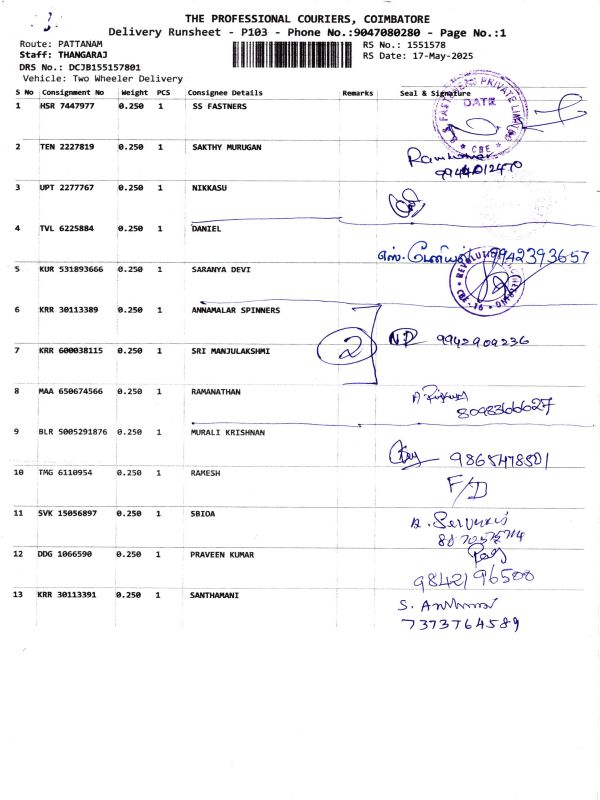 THE PROFESSIONAL COURIERS, COIMBATORE
Delivery Runsheet - P103 - Phone No.:9047080280 - Page No.:1
Route: PATTANAM RS No.: 1551578
Staff: THANGARAJ RS Date: 17-May-2025
DRS No.: DCJB155157801
Vehicle: Two Wheeler Delivery
S No Consignment No Weight PCS Consignee Details Remarks Seal & Signature
1 HSR 7447977 0.250 1 SS FASTNERS
DATE
* CBE *
2 TEN 2227819 0.250 1 SAKTHY MURUGAN
9944012470
3 UPT 2277767 0.250 1 NIKKASU
4 TVL 6225884 0.250 1 DANIEL
எஸ். டேனியல் 9942393657
5 KUR 531893666 0.250 1 SARANYA DEVI
6 KRR 30113389 0.250 1 ANNAMALAR SPINNERS
2 9942909236
7 KRR 600038115 0.250 1 SRI MANJULAKSHMI
8 MAA 650674566 0.250 1 RAMANATHAN
8098366627
9 BLR 5005291876 0.250 1 MURALI KRISHNAN
9865478501
10 TMG 6110954 0.250 1 RAMESH
F/D
11 SVK 15056897 0.250 1 SBIOA
12 DDG 1066590 0.250 1 PRAVEEN KUMAR
9842196500
13 KRR 30113391 0.250 1 SANTHAMANI
7373764589